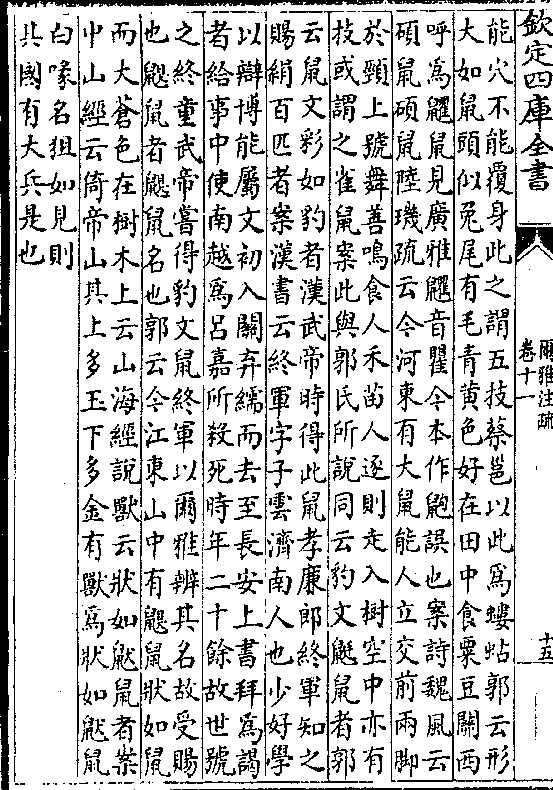 欽定四庫全書
爾雅注疏
卷十一
十五
能穴不能覆身此之謂五技蔡邕以此為螻蛄郭云形
大如鼠頭似兎尾有毛青黄色好在田中食粟豆關西
呼為鼩鼠見廣雅鼩音瞿今本作䶈誤也案詩魏風云
碩鼠碩鼠陸璣疏云今河東有大鼠能人立交前兩脚
於頸上跳舞善鳴食人禾苗人逐則走入樹空中亦有
技或謂之雀鼠案此與郭氏所說同云豹文鼮鼠者郭
云鼠文彩如豹者漢武帝時得此鼠孝廉郎終軍知之
賜絹百匹者案漢書云終軍字子雲濟南人也少好學
以辯博能屬文初入關弃繻而去至長安上書拜為謁
者給事中使南越為吕嘉所殺死時年二十餘故世號
之終童武帝嘗得豹文鼠終軍以爾雅辨其名故受賜
也鼳鼠者鼳鼠名也郭云今江東山中有鼳鼠狀如鼠
而大蒼色在樹木上云山海經說獸云狀如鼣鼠者案
中山經云倚帝山其上多玉下多金有獸焉狀如鼣鼠
白喙名狙如見則
其國有大兵是也